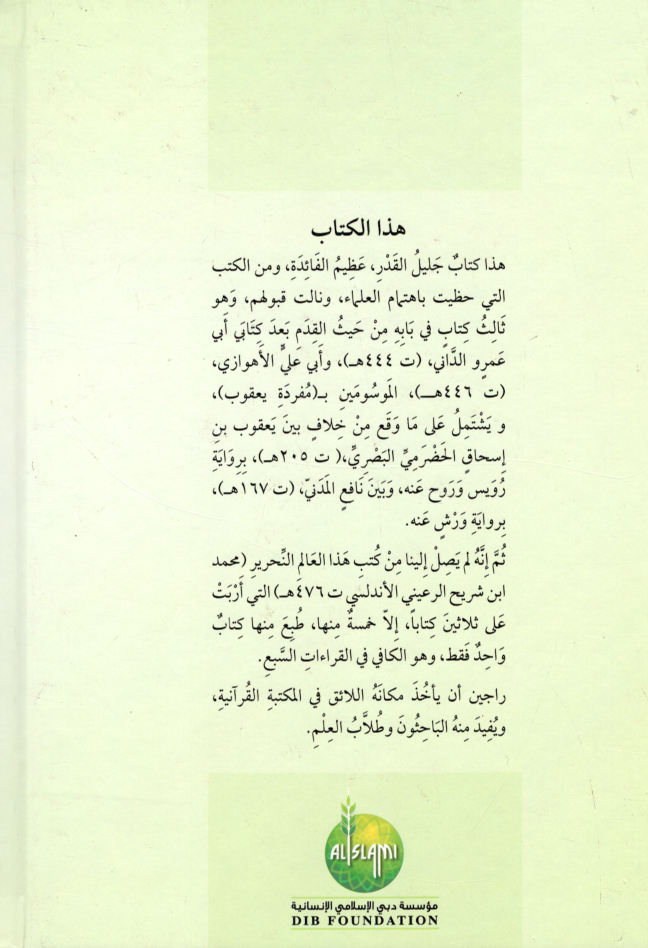 هذا الكتاب
هذا كتابٌ جَليلُ القَدْرِ، عَظِيمُ الفَائِدَةِ، ومن الكتب
التي حظيت باهتمام العلماء، ونالت قبولهم، وَهو
ثَالِثُ كِتابٍ في بَابِهِ مِنْ حَيثُ القِدَم بَعدَ كِتَابَي أبي
عَمرٍو الدَّاني، (ت ٤٤٤هـ)، وأَبي عَليٍّ الأَهوازي،
(ت ٤٤٦هــ)، المَوسُومَينِ بـ(مُفردَةِ يعقوب)،
و يَشْتَمِلُ عَلى مَا وَقَع مِنْ خِلافٍ بينَ يَعقوب بنِ
إسحاقٍ الحَضْرَميِّ البَصْرِيِّ،( ت ٢٠٥هـ)، بِروَايَةِ
رُوَيس وَرَوح عَنه، وَبَينَ نَافعٍ المَدَنيّ، (ت ١٦٧هـ)،
بِروايَةِ وَرْشٍ عَنه.
ثُمَّ إنَّهُ لم يَصِلْ إلينا مِنْ كُتبِ هَذا العَالمِ النِّحريرِ (محمد
ابن شريح الرعيني الأندلسي ت ٤٧٦هـ) التي أَرْبَتْ
عَلى ثلاثينَ كِتاباً، إلاّ خمسةٌ مِنها، طُبِعَ مِنها كِتابٌ
وَاحِدٌ فَقط، وهو الكافي في القراءاتِ السَّبعِ.
راجين أن يأخُذَ مكانَهُ اللائق في المكتبةِ القُرآنيةِ،
ويُفِيدَ مِنهُ البَاحِثُونَ وطُلاَّبُ العِلْمِ.
AL ISLAMI
مؤسسة دبي الإسلامي الإنسانية
DIB FOUNDATION